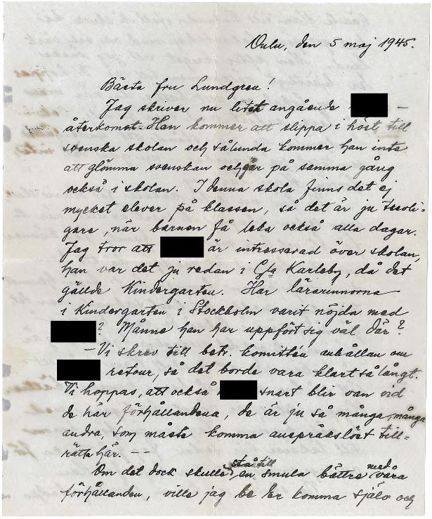 Oulu, den 5 maj 1945.
Bästa fru Lundgren!
Jag skriver nu litet angående —
återkomst. Han kommer att slippa i höst till
svenska skolan och sålunda kommer han inte
att glömma svenskan och går på samma gång
också i skolan. I denna skola finns det ej
mycket elever på klassen, så det är ju trevli-
gare, när barnen få leka också alla dagar.
Jag tror att är intresserad över skolan,
han var det ju redan i G:la Karleby, då det
gällde Kindergarten. Har lärarinnorna
i Kindergarten i Stockholm varit nöjda med
? Månne han har uppfört sig väl där?
— Vi skrev till betr. komittén anhållan om
retour, så det borde vara klart så långt.
Vi hoppas, att också snart blir van vid
de här förhållandena, de är ju så många, många
andra, som måste komma anspråkslöst till-
rätta här. —
Om det dock skulle stå till en smula bättre med våra
förhållanden, ville jag be Er komma själv och